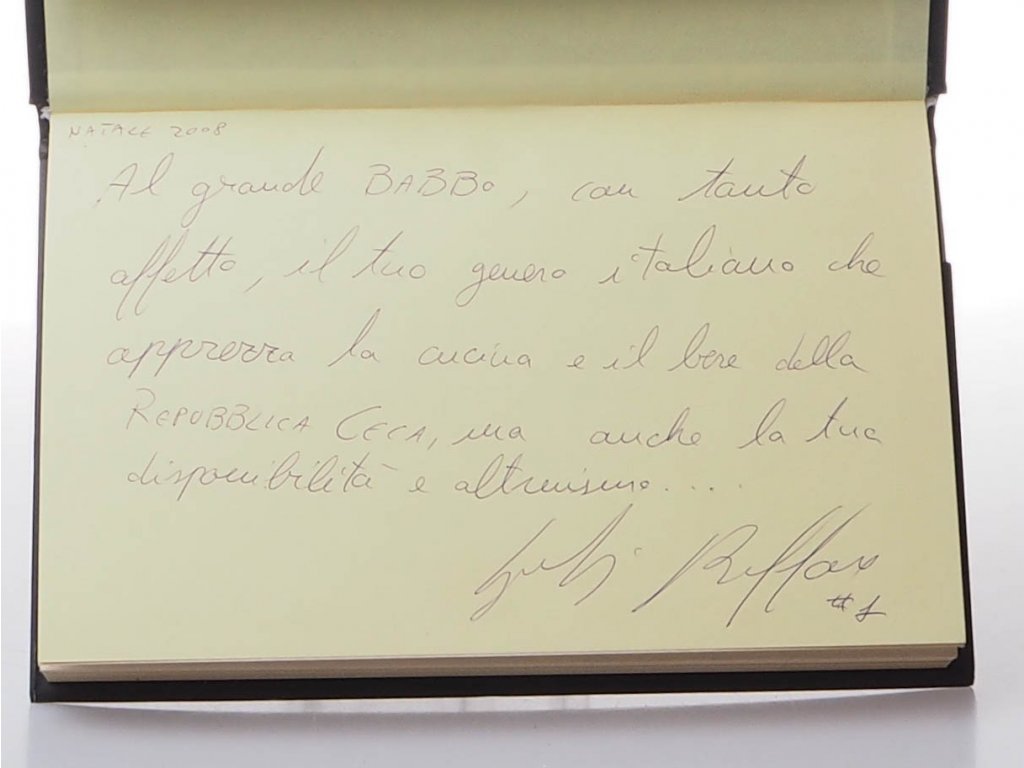 NATALE 2008
Al grande BABBO, con tanto
affetto, il tuo genero italiano che
apprezza la cucina e il bere della
REPUBBLICA CECA, ma anche la tua
disponibilità e altruismo....
#1